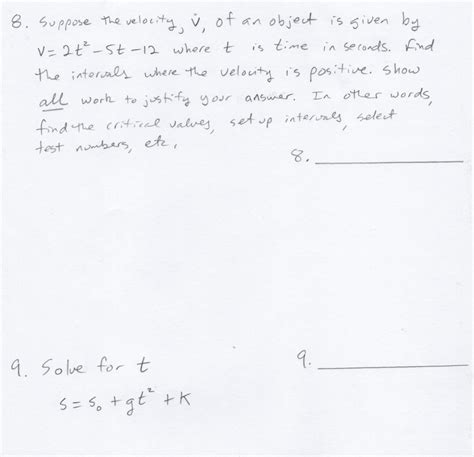 8. Suppose the velocity, v, of an object is given by
v = 2t² - 5t - 12 where t is time in seconds. Find
the intervals where the velocity is positive. Show
all work to justify your answer. In other words,
find the critical values, set up intervals, select
test numbers, etc.
8. ____________
9. Solve for t
9. ____________
s = s₀ + gt² + k